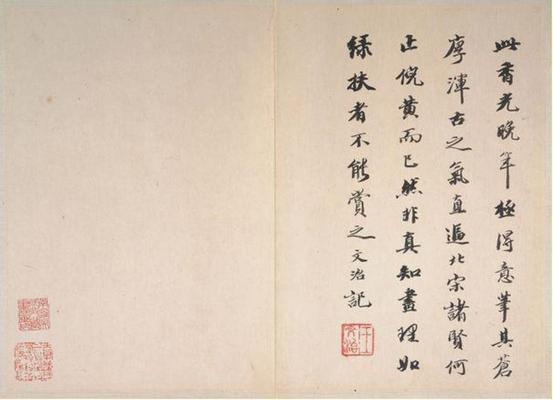 此香光晚年極得意筆其蒼
厚渾古之氣直逼北宋諸賢何
止倪黃而已然非真知畫理如
绿扶者不能賞之文治記
王文治